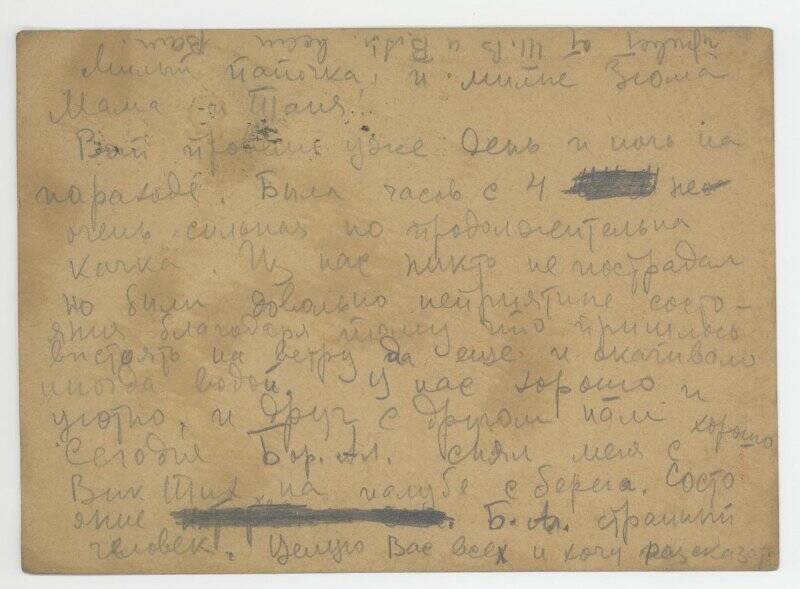 привет от Ш. В и В. А. всем Вам.
Милый папочка, и милые Зюма
Мама и Таня!
Вот прошли уже день и ночь на
пароходе. Была часов с 4 не
очень сильная но продолжительна
качка. Из нас никто не пострадал
но были довольно неприятные состо-
яния благодаря тому что пришлось
выстоять на ветру да еще и окачивало
иногда водой. У нас хорошо и
уютно, и друг с другом нам хорошо
Сегодня Бор. Ал. снял меня с
Вик Тих на палубе с берега. Состо
яние Б. А. странный
человек. Целую Вас всех и хочу рассказат